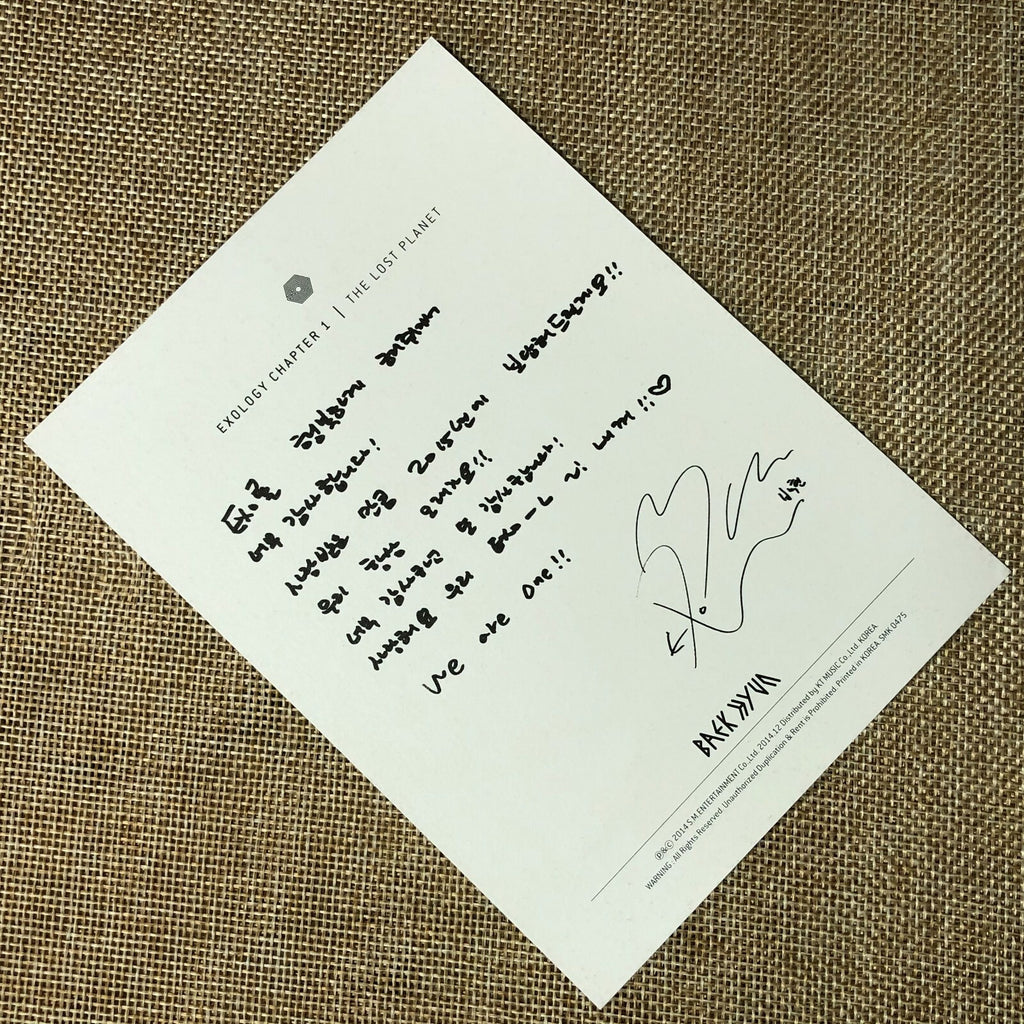 EXOLOGY CHAPTER 1 | THE LOST PLANET
EXO를 행복하게 해줘서
너무 감사합니다!
사랑받은 만큼 2015년에 보답해드릴게요!!
우리 항상 오래가요!!
너무 감사하면 또 감사합니다!
사랑해요 우리 EXO-L 리 내꺼!!♡
We are one!!
백현
BAEK HYUN
℗&© 2014 S.M.ENTERTAINMENT Co.,Ltd. 2014.12 Distributed by KT MUSIC Co.,Ltd. KOREA
WARNING : All Rights Reserved. Unauthorized Duplication & Rent is Prohibited. Printed in KOREA. SMK 0475